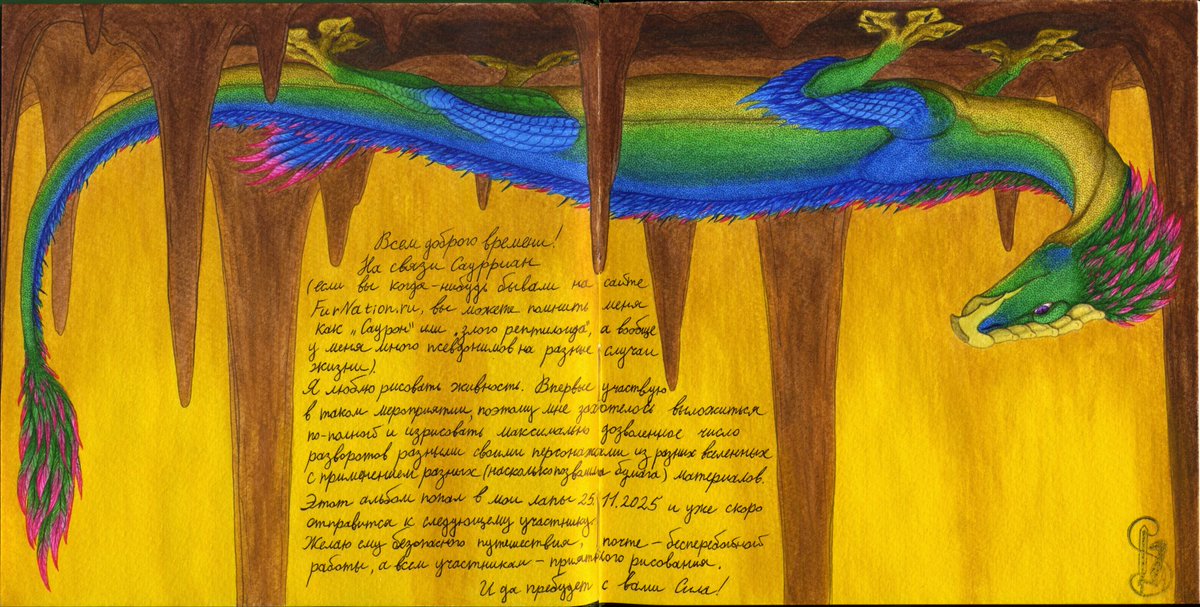 Всем доброго времени!
На связи Саурриан
(если вы когда-нибудь бывали на сайте
FurNation.ru, вы можете помнить меня
как „Саурон" или „злого рептилоида", а вообще
у меня много псевдонимов на разные случаи
жизни).
Я люблю рисовать живность. Впервые участвую
в таком мероприятии, поэтому мне захотелось выложиться
по-полной и изрисовать максимально дозволенное число
разворотов разными своими персонажами из разных вселенных
с применением разных (насколько позволила бумага) материалов.
Этот альбом попал в мои лапы 25.11.2025 и уже скоро
отправится к следующему участнику.
Желаю ему безопасного путешествия, почте – бесперебойной
работы, а всем участникам – приятного рисования.
И да пребудет с вами Сила!